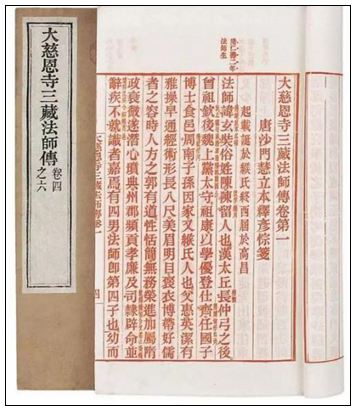 大慈恩寺三藏法師傳 卷四之六
大慈恩寺三藏法師傳卷第一
唐沙門慧立本釋彥悰箋
起載誕於緱氏終西屆於高昌
法師諱玄奘俗姓陳陳留人也漢太丘長仲弓之後
曾祖欽後魏上黨太守祖康以學優登仕齊任國子
博士食邑周南子孫因家又緱氏人也父惠英潔有
雅操早通經術形長八尺美眉明目裒衣博帶好儒
者之容時人方之郭有道性恬簡無務榮進加屬隋
政衰微遂潛心墳典州郡頻貢孝廉及司隸辟命並
辭疾不就識者嘉焉有四男法師即第四子也幼而
大慈恩寺三藏法師傳卷一